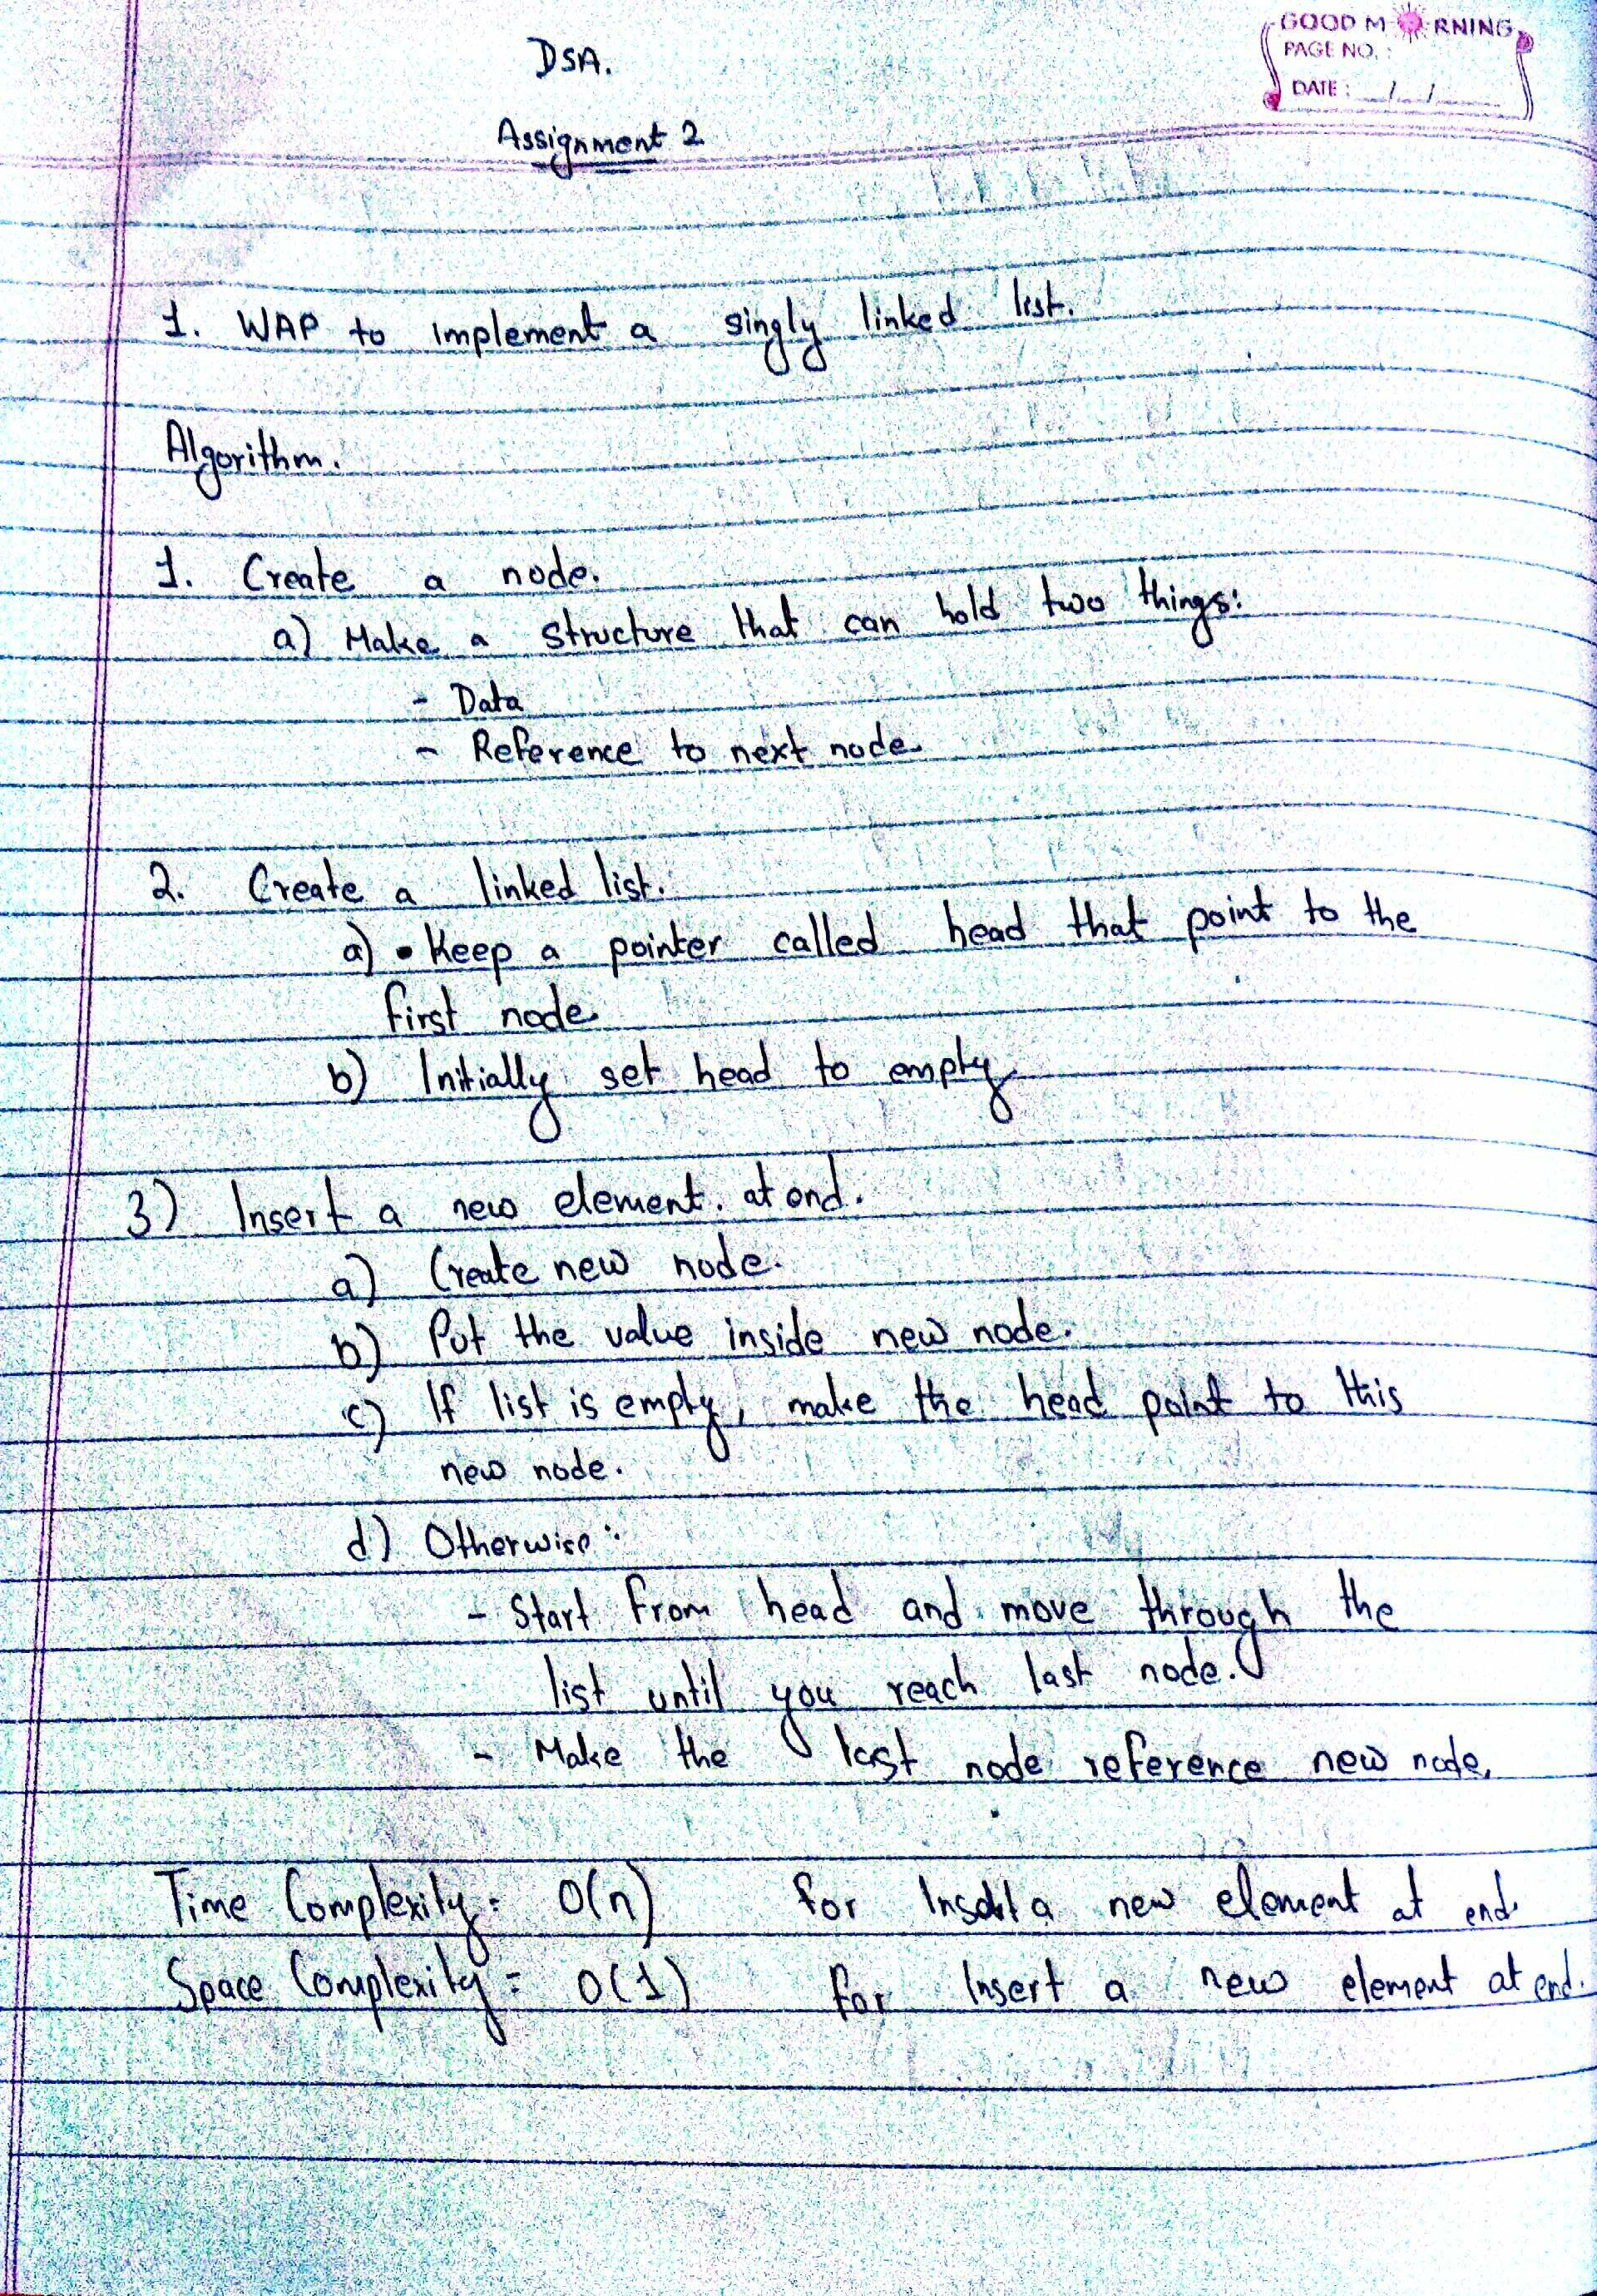 GOOD MORNING
PAGE NO. :
DATE : / /
DSA.
Assignment 2
1. WAP to implement a singly linked list.
Algorithm.
1. Create a node.
a) Make a structure that can hold two things:
- Data
- Reference to next node.
2. Create a linked list.
a) • Keep a pointer called head that point to the
first node
b) Initially set head to empty
3) Insert a new element. at end.
a) Create new node.
b) Put the value inside new node.
c) If list is empty, make the head point to this
new node.
d) Otherwise :
- Start from head and move through the
list until you reach last node.
- Make the last node reference new node.
Time Complexity = O(n) for a new element at end.
Space Complexity = O(1) for Insert a new element at end.